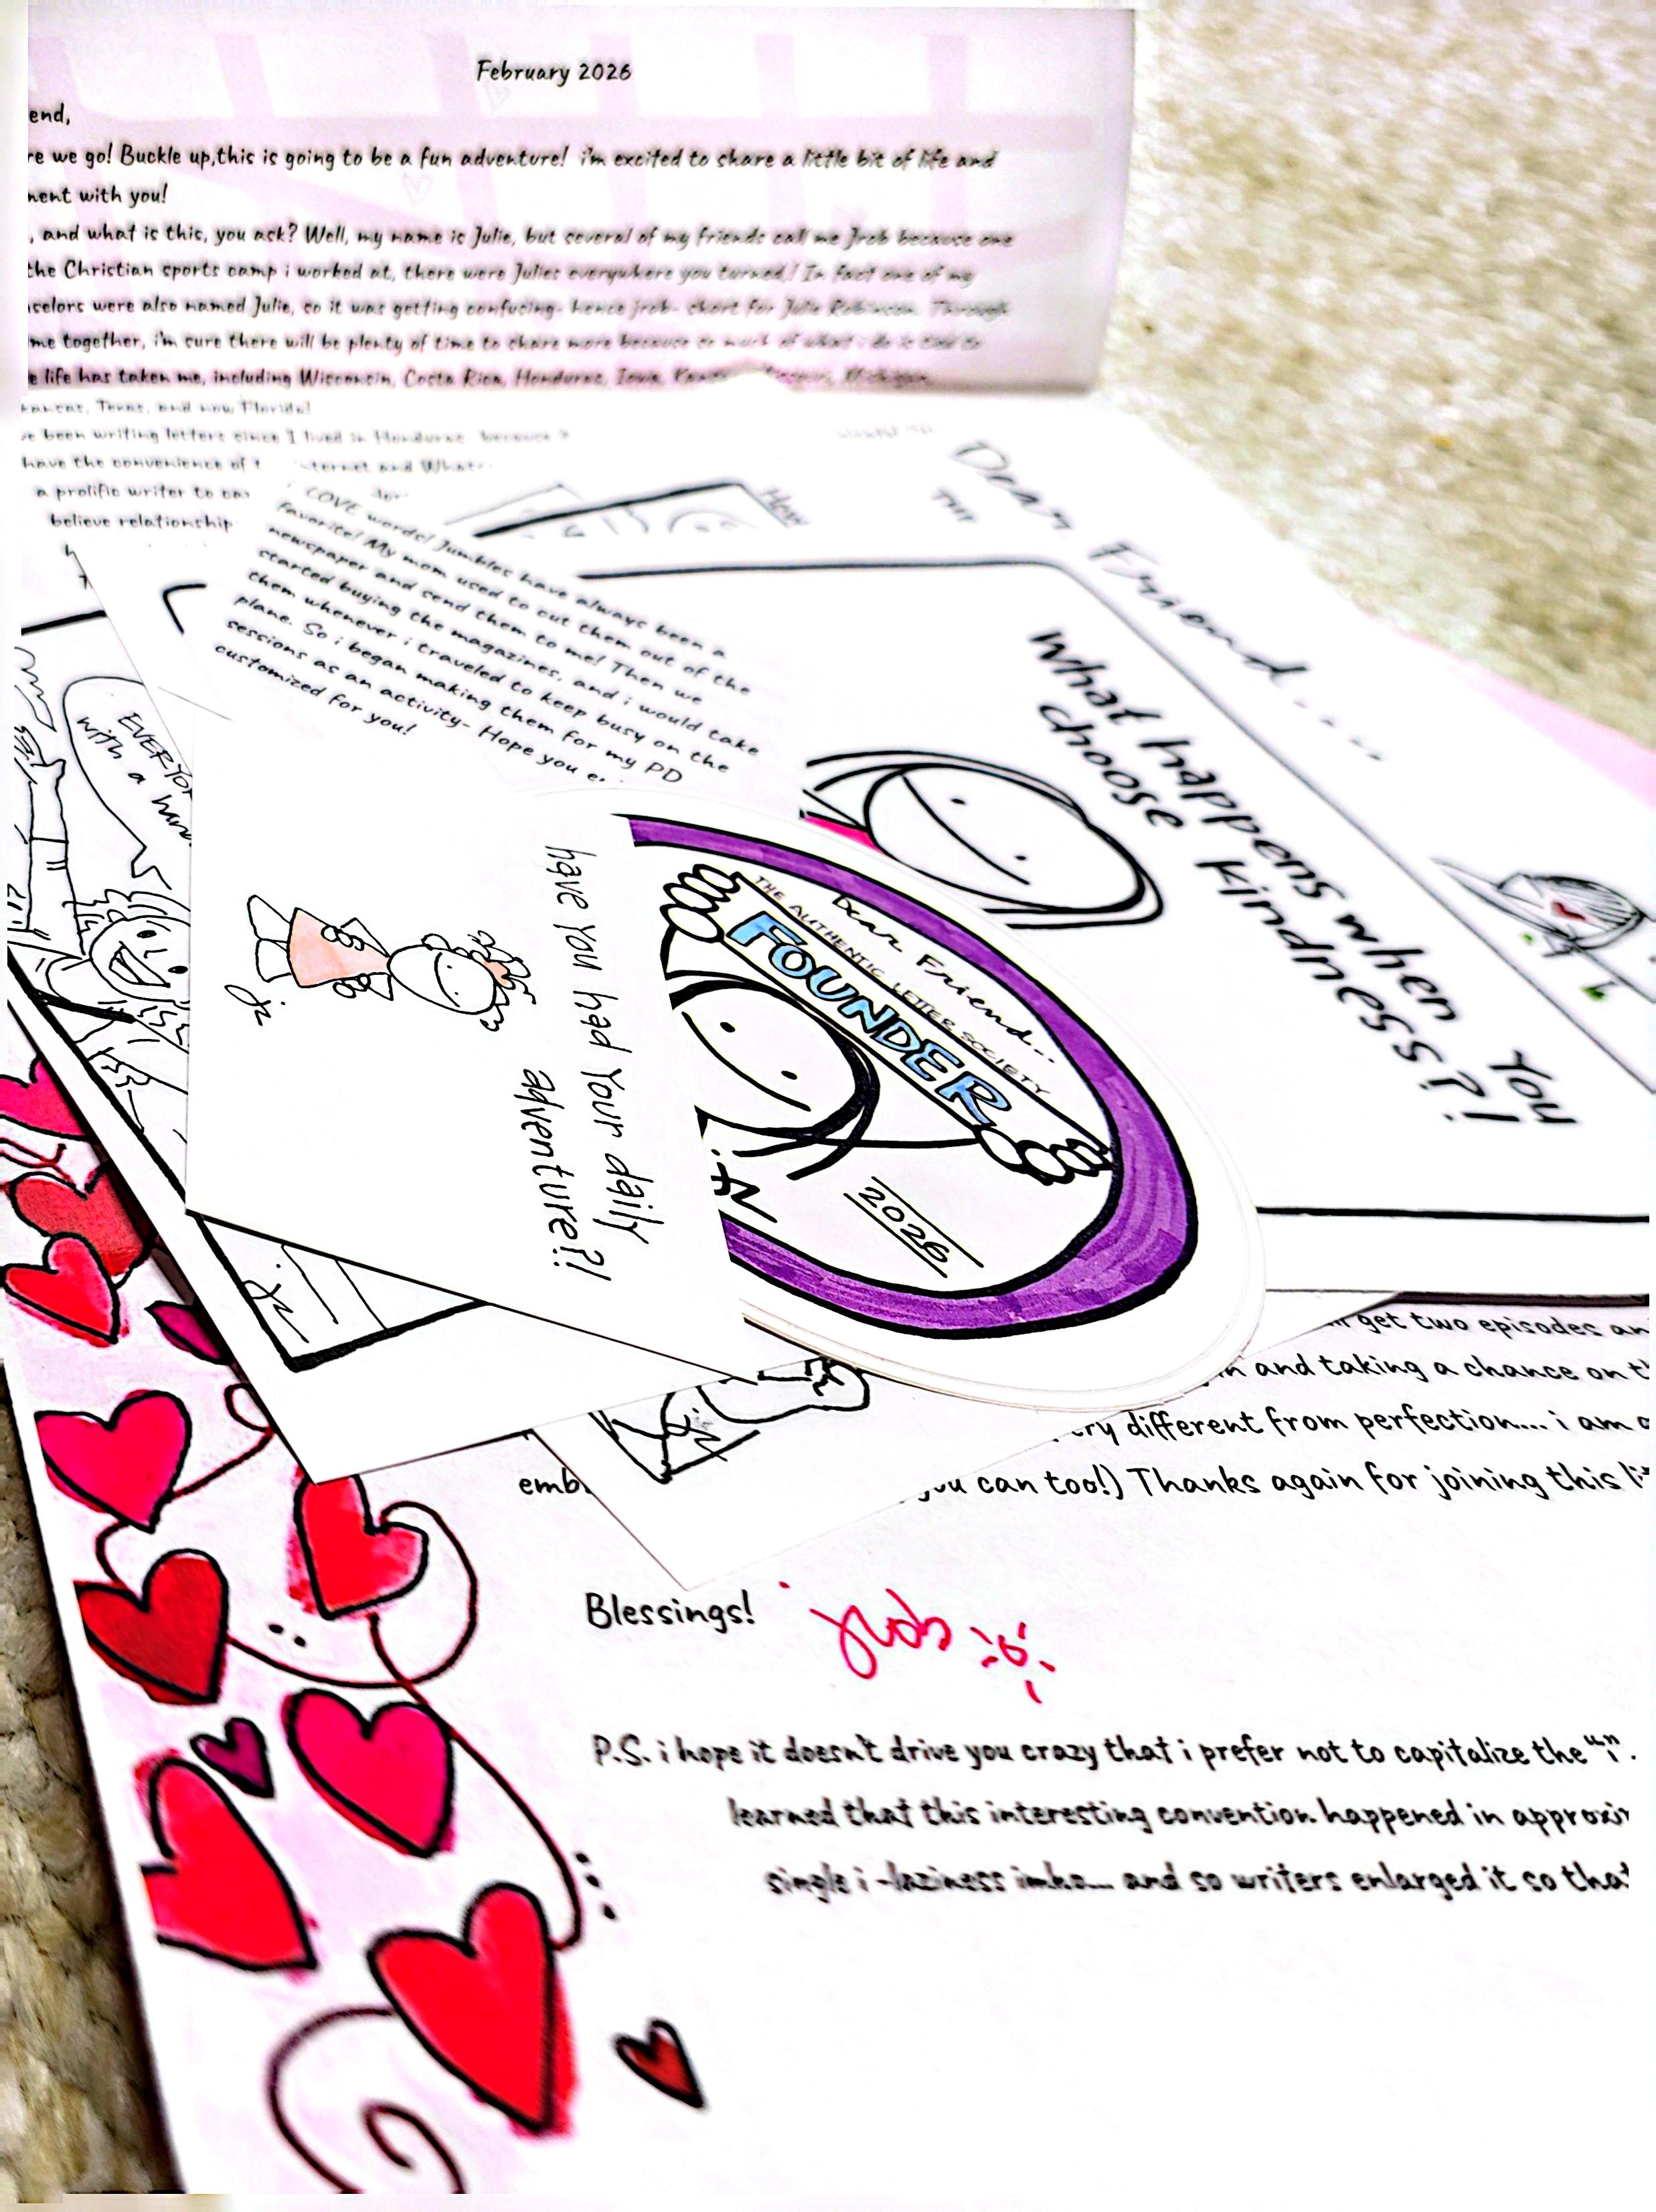 February 2026
end,
re we go! Buckle up,this is going to be a fun adventure! i'm excited to share a little bit of life and
ment with you!
, and what is this, you ask? Well, my name is Julie, but several of my friends call me Jrob because one
the Christian sports camp i worked at, there were Julies everywhere you turned! In fact one of my
selors were also named Julie, so it was getting confusing- hence jrob- short for Julie Robinson. Through
me together, i'm sure there will be plenty of time to share more because so much of what i do is tied to
e life has taken me, including Wisconsin, Costa Rica, Honduras, Iowa, Michigan,
kansas, Texas, and now Florida!
ve been writing letters since I lived in Honduras because
have the convenience of internet and What
a prolific writer to
believe relationship
LOVE words! Jumbles have always been a
favorite! My mom used to cut them out of the
newspaper and send them to me! Then we
started buying the magazines, and i would take
them whenever i traveled to keep busy on the
plane. So i began making them for my PD
sessions as an activity- Hope you e
customized for you!
Dear Friend....
THE
How
What happens when You
choose kindness?!
EVERYO
with a
have You had Your daily
adventure?!
jr
Dear Friend...
THE AUTHENTIC LETTER SOCIETY
FOUNDER
2026
get two episodes an
and taking a chance on t
ery different from perfection... i am a
emb you can too!) Thanks again for joining this li
Blessings! jrob
P.S. i hope it doesn't drive you crazy that i prefer not to capitalize the "i".
learned that this interesting convention happened in approxi
single i -laziness imho... and so writers enlarged it so that